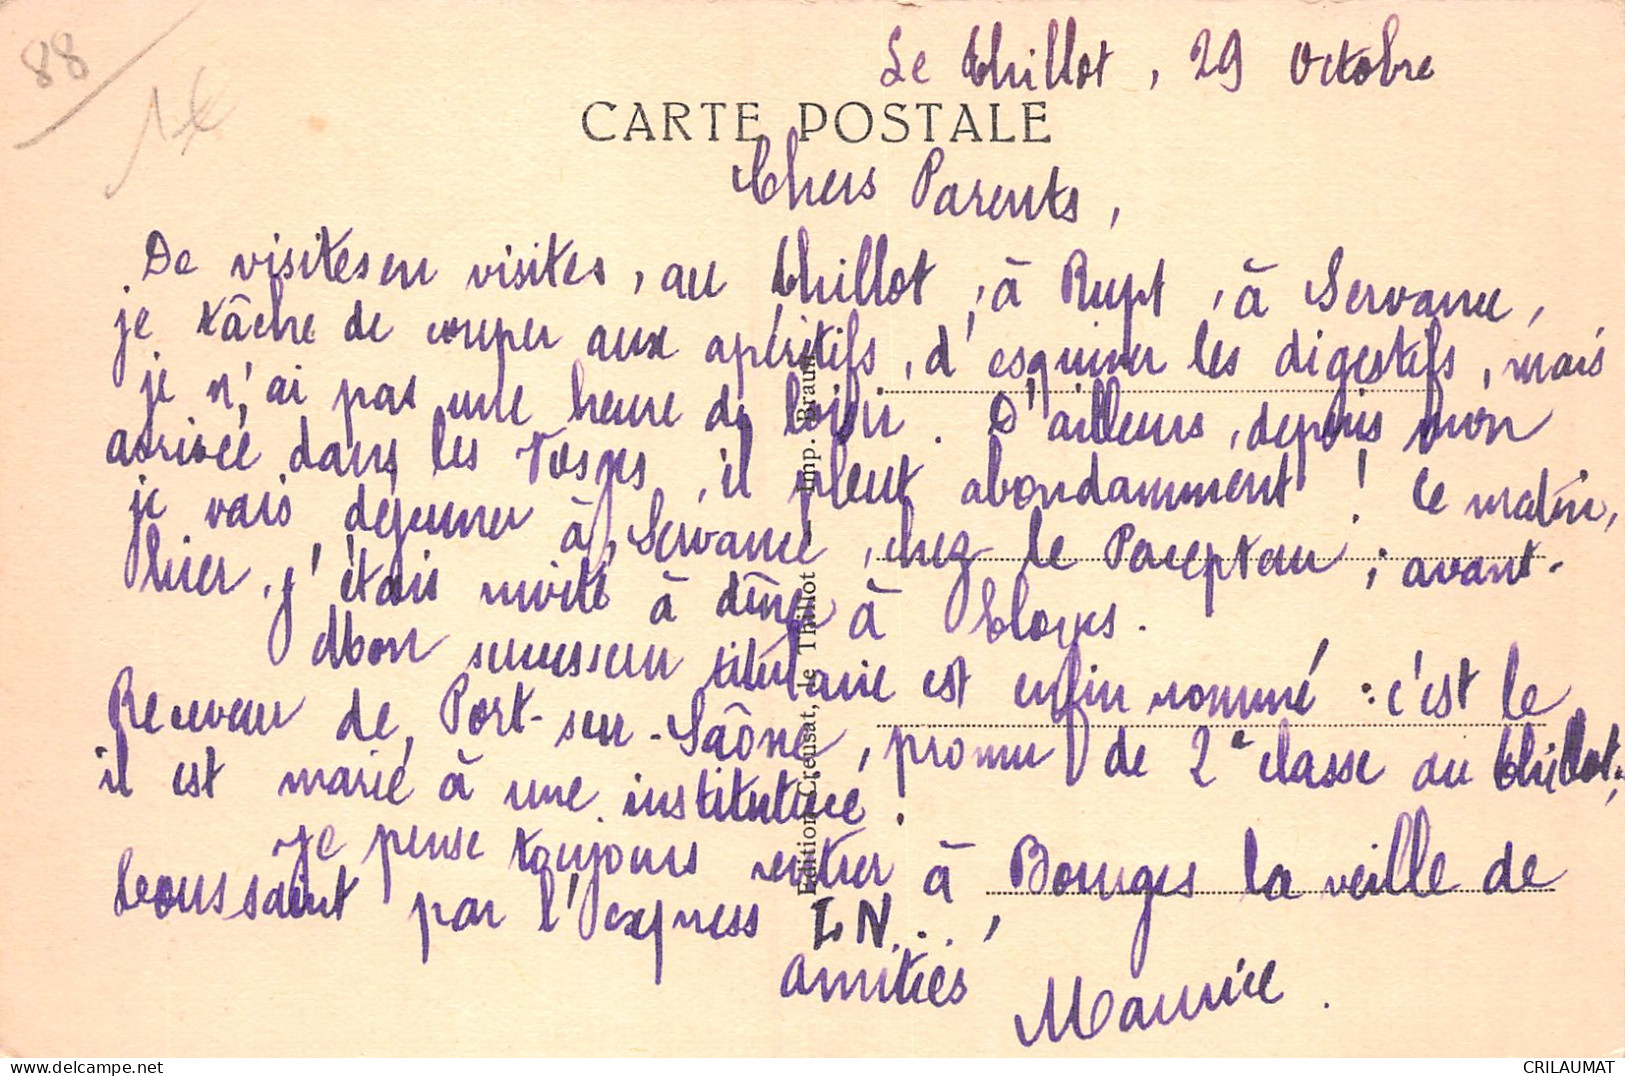 88
Le Thillot, 29 Octobre
CARTE POSTALE
Chers Parents,
De visites en visites, au Thillot, à Rupt, à Servance,
je tâche de couper aux apéritifs, d'esquiver les digestifs, mais
je n'ai pas une heure de loisir. D'ailleurs, depuis mon
arrivée dans les Vosges, il pleut abondamment! Ce matin,
je vais déjeuner à Servance, chez le Percepteur; avant-
hier, j'étais invité à dîner à Cloyes.
Mon successeur titulaire est enfin nommé: c'est le
Receveur de Port-sur-Saône, promu de 2e classe au Thillot;
il est marié à une institutrice.
Je pense toujours rentrer à Bourges la veille de
Toussaint par l'express L N...,
Amitiés
Maurice.
Edition Creusat, le Thillot — Imp. Braun
www.delcampe.net
CRILAUMAT